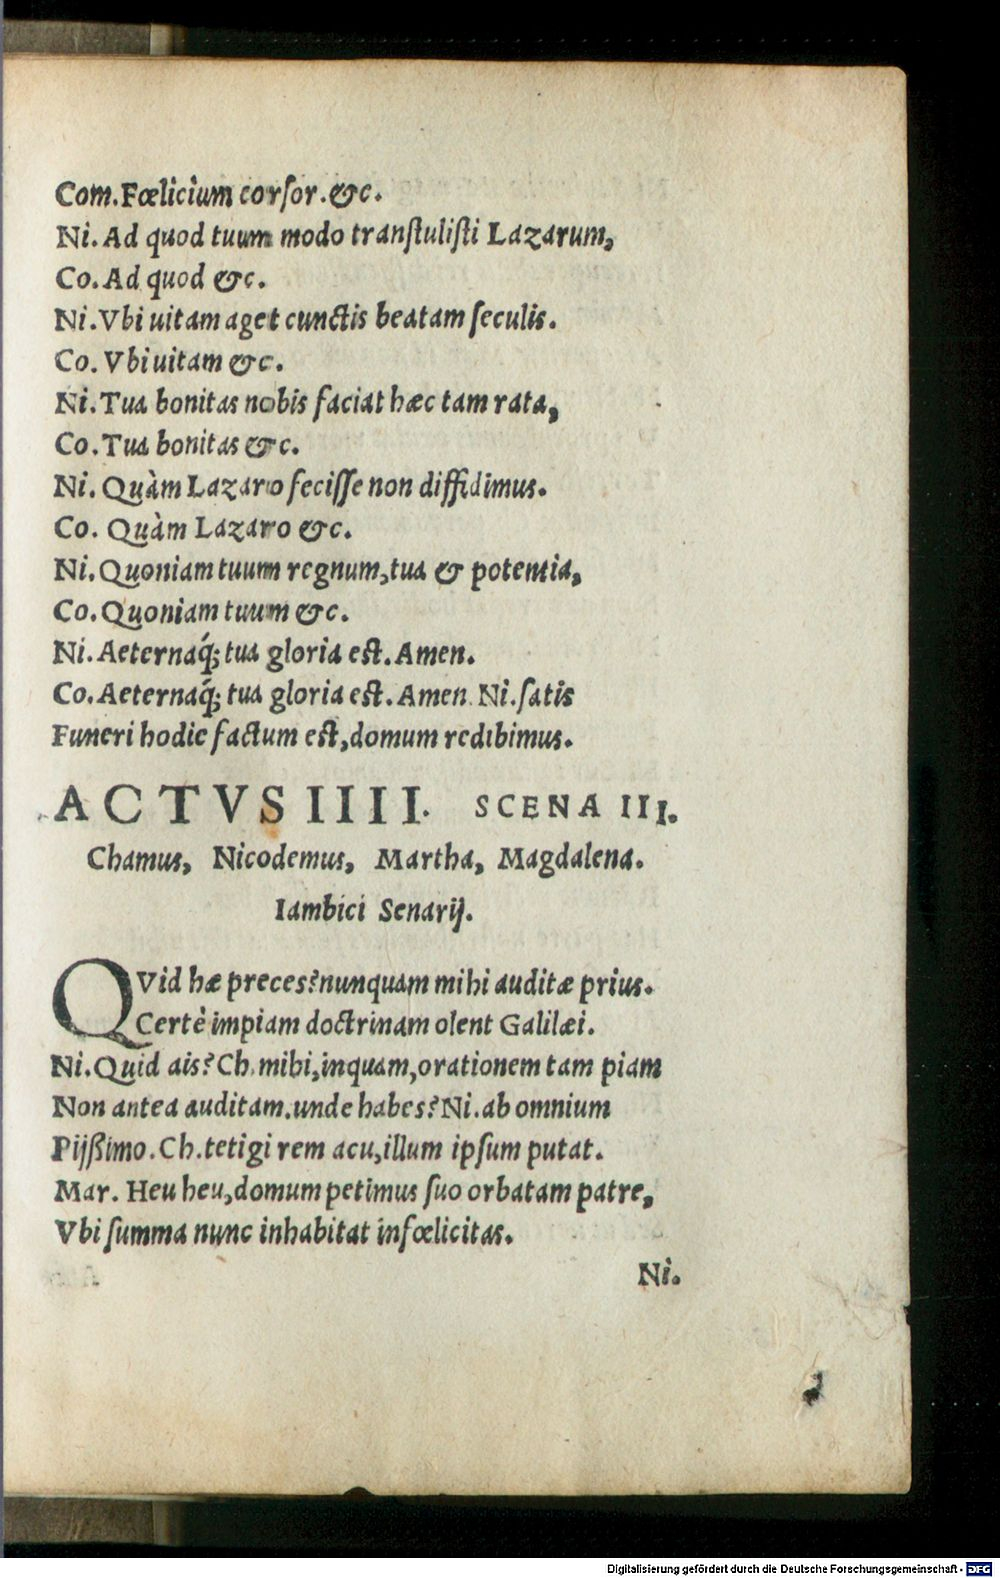 Com. Fœlicium corſor. &c.
Ni. Ad quod tuum modo tranſtuliſti Lazarum,
Co. Ad quod &c.
Ni. Vbi uitam aget cunctis beatam ſeculis.
Co. Vbi uitam &c.
Ni. Tua bonitas nobis faciat hæc tam rata,
Co. Tua bonitas &c.
Ni. Quàm Lazaro feciſſe non diffidimus.
Co. Quàm Lazaro &c.
Ni. Quoniam tuum regnum, tua & potentia,
Co. Quoniam tuum &c.
Ni. Aeternaq́; tua gloria eſt. Amen.
Co. Aeternaq́; tua gloria eſt. Amen. Ni. ſatis
Funeri hodie factum eſt, domum redibimus.
ACTVS IIII. SCENA III.
Chamus, Nicodemus, Martha, Magdalena.
Iambici Senarij.
QVid hæ preces? nunquam mihi auditæ prius.
Certè impiam doctrinam olent Galilæi.
Ni. Quid ais? Ch. mihi, inquam, orationem tam piam
Non antea auditam. unde habes? Ni. ab omnium
Pijßimo. Ch. tetigi rem acu, illum ipſum putat.
Mar. Heu heu, domum petimus ſuo orbatam patre,
Vbi ſumma nunc inhabitat infœlicitas.
Ni.
Digitalisierung gefördert durch die Deutsche Forschungsgemeinschaft - DFG